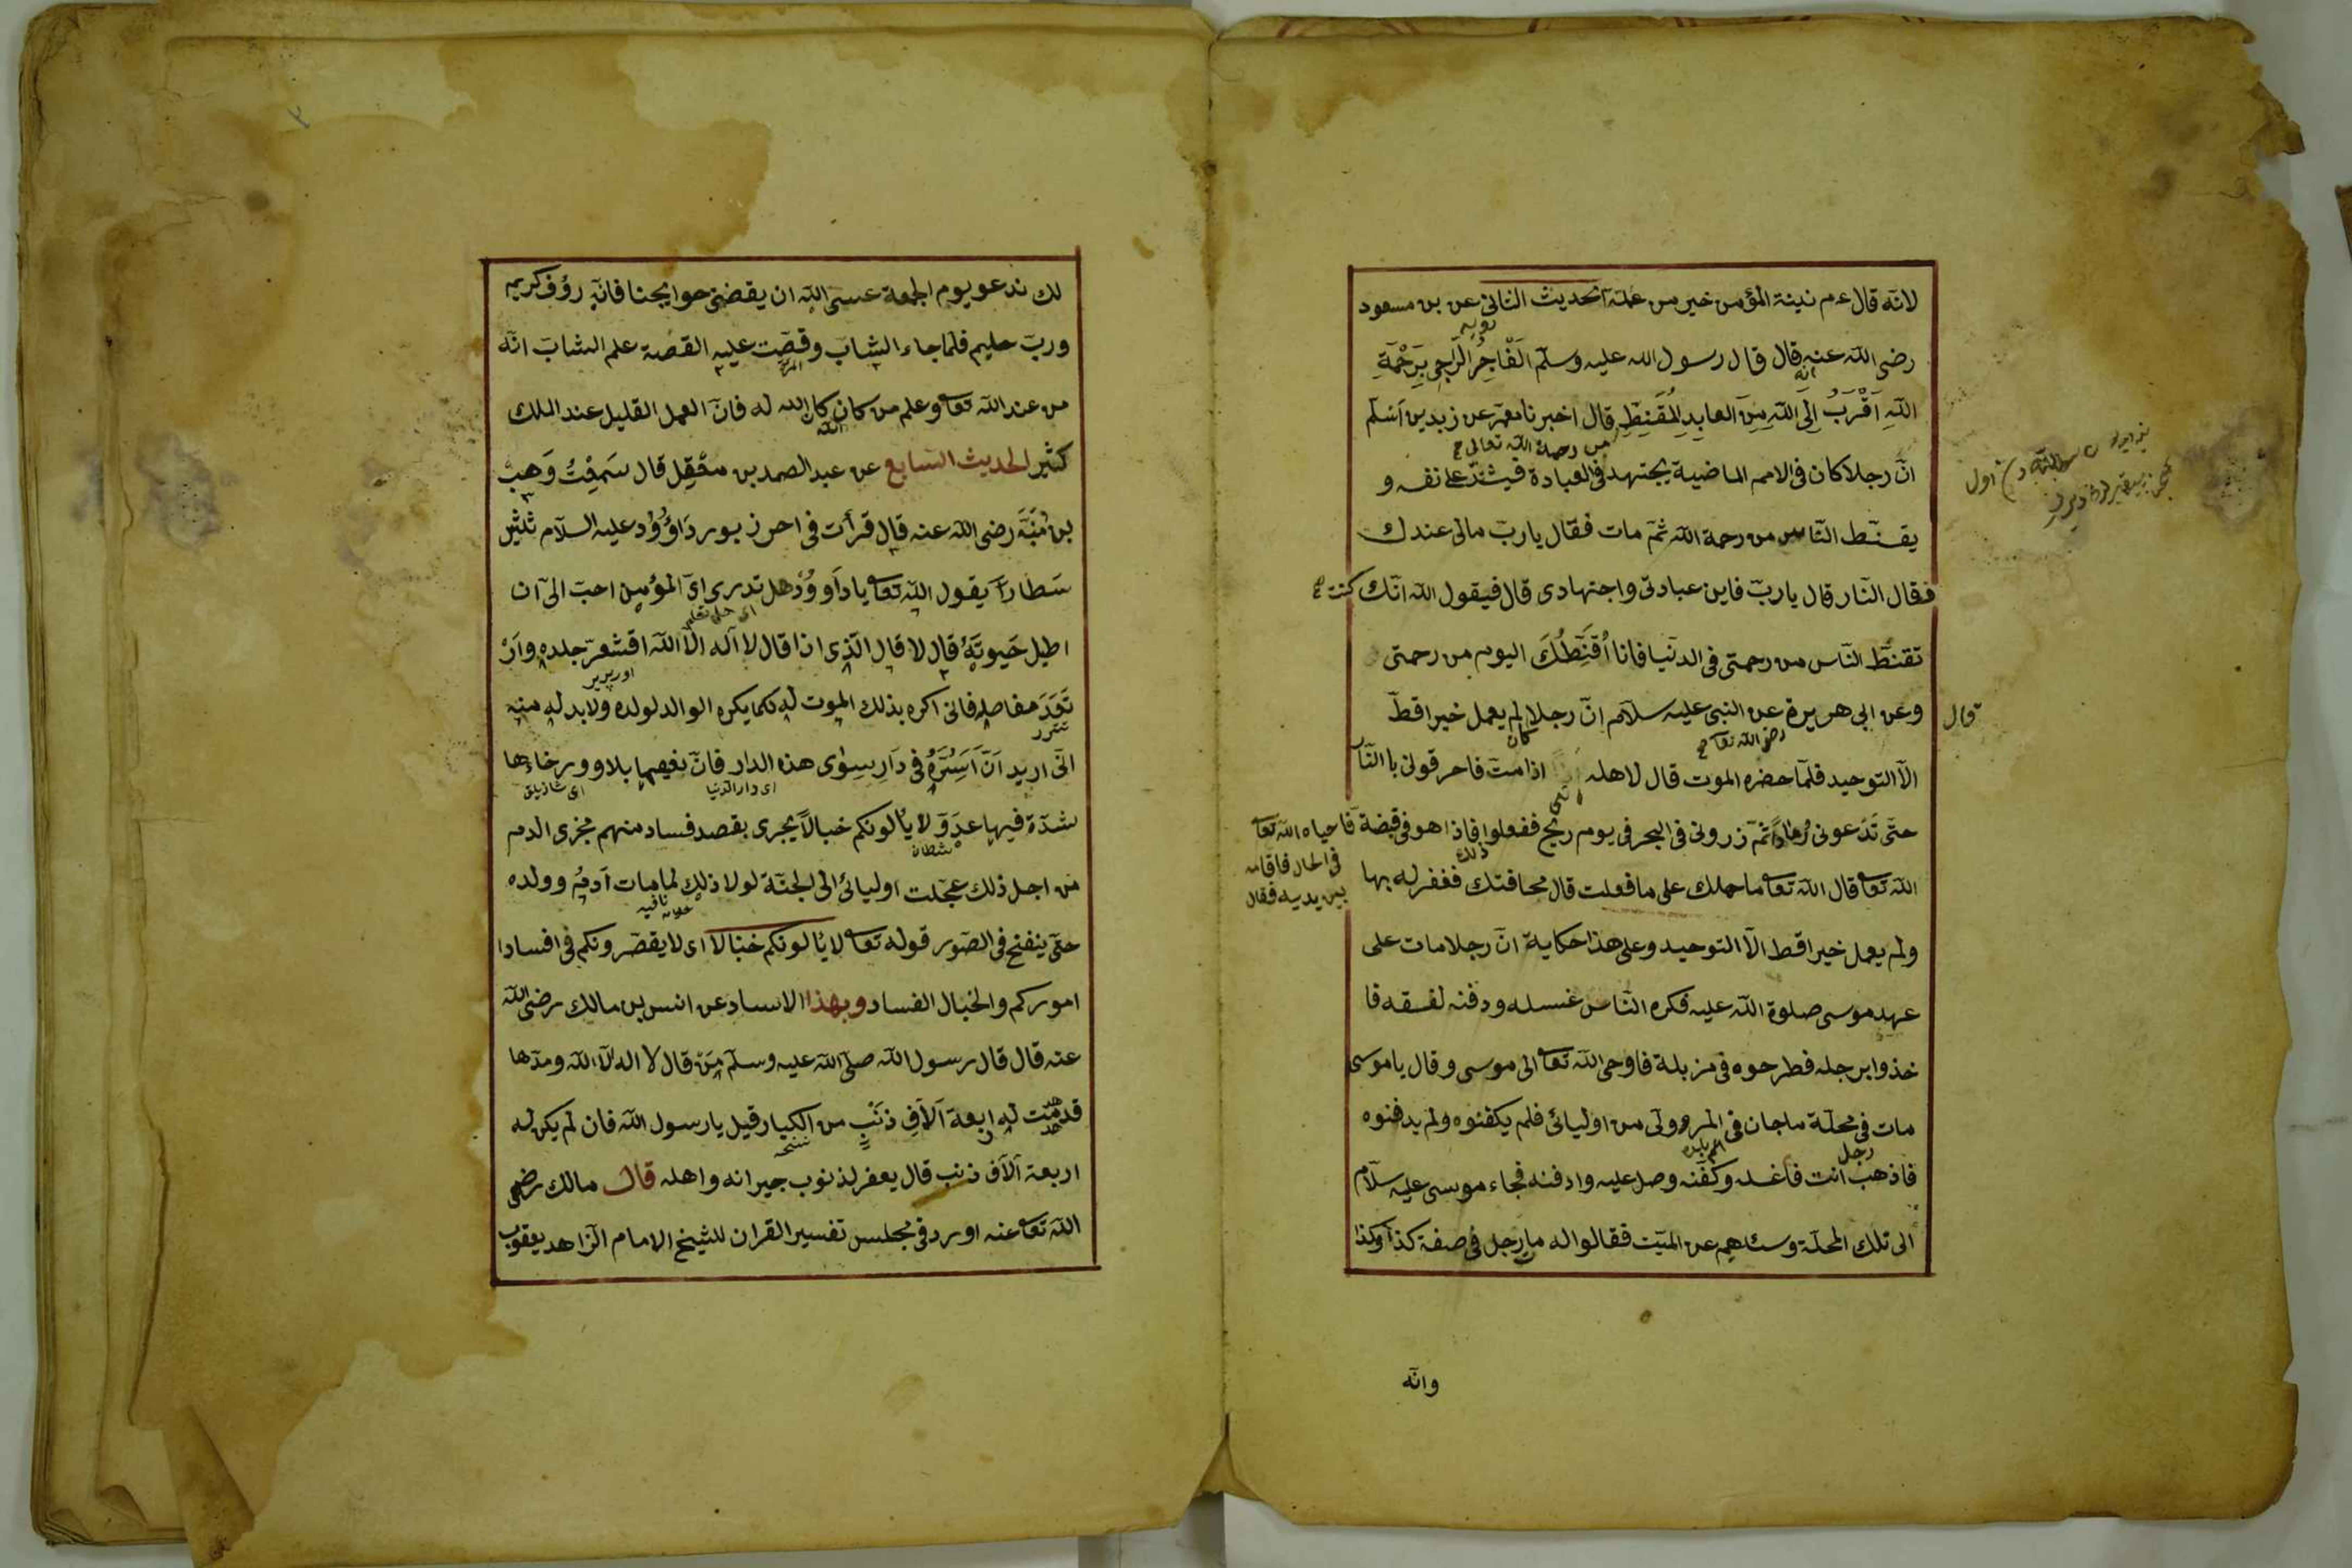 لانه قال ءم نية المؤمن خير من عمله الحديث الثاني عن بن مسعود
رضى الله عنه قال قال رسول الله عليه وسلم اَلْفَاجِرُ الرَّاجِى بِرَحْمَةِ
اللهِ اَقْرَبُ اِلَى اللهِ مِنَ العابِدِ المُقَنِطِ قال اخبرنا معمر عن زيد بن اَسْلم
من رحمة الله تعالى
انّ رجلا كان فى الامم الماضية يجتهد فى العبادة فيشدّ على نفسه و
يقنّط النّاس من رحمة الله ثمّ مات فقال يا ربّ مالى عندك
فقال النّار قال يا ربّ فاين عبادتى واجتهادى قال فيقول الله انّك كنت
تقنّط النّاس من رحمتى فى الدنيا فانا اُقَنِّطُكَ اليوم من رحمتى
قال
وعن ابى هريرة عن النبى عليه سلام انّ رجلا لم يعمل خيرا قطّ
رضى الله تعا
كان
الّا التوحيد فلمّا حضره الموت قال لاهله اذا متّ فاحرقونى بالنّار
حتّى تَدَعونى رُمَادًا ثمّ ذرونى فى البحر فى يوم ريح ففعلوا فاذا هو فى قبضة
ذلك
فاحياه الله تعا
فى الحال فاقامه
بين يديه فقال
الله تعا قال الله تعا ما حملك على ما فعلت قال مخافتك فغفر له بها
ولم يعمل خيرا قط الّا التوحيد وعلى هذا حكاية انّ رجلا مات على
عهد موسى صلوة الله عليه فكره النّاس غسله ودفنه لفسقه فا
خذوا برجله فطرحوه فى مزبلة فاوحى الله تعا الى موسى وقال يا موسى
مات فى محلّة ماجان فى المر وولى من اوليائى فلم يكفنوه ولم يدفنوه
رجل
فاذهب انت فاغسله وكفّنه وصل عليه وادفنه فجاء موسى عليه سلام
الى تلك المحلّة وسئلهم عن الميّت فقالوا له مات رجل فى صفة كذا وكذا
وانّه
لك ندعو يوم الجمعة عسى الله ان يقضى حوايجنا فانّه رؤف كريم
وربّ حليم فلمّا جاء الشاب وقصّت عليه القصة علم الشابّ انّه
من عند الله تعا وعلم من كان كان الله له فانّ العمل القليل عند الملك
كثير الحديث السّابع عن عبد الصمد بن معقِل قال سَمِعْتُ وَهب
بن مُنَبَّه رضى الله عنه قال قرأت فى اخر زبور دَاوُود عليه السلام ثلثين
سَطارًا يقول الله تعا يا داوود هل تدرى اىّ المؤمنين احبّ الىّ ان
اطيل حَيوتَهُ قال لا قال الّذى اذا قال لا اله الّا الله اقشعرّ جلده وارْ
تَعَدَ مفاصله فانى اكره بذلك الموت له كما يكره الوالد لولده ولا بد له منه
انّى اريد اَنْ اَسُرَّهُ فى دَارٍ سِوٰى هذه الدار فانّ نعيمها بلاو ورخاءها
اى دار الدّنيا
شدّة فيها عدوّ لا يألونكم خبالًا يجرى بقصد فساد منهم مجرى الدم
شيطان
من اجل ذلك عجّلت اوليائى الى الجنّة لولا ذلك لما مات آدم وولده
حتّى ينفخ فى الصّور قوله تعا لا يألونكم خبالا اى لا يقصّرونكم فى افسادا
اموركم والخبال الفساد وبهذا الاسناد عن انس بن مالك رضى الله
عنه قال قال رسول الله صلّى الله عليه وسلّم مَن قال لا اله الّا الله ومدّها
هدمت له اربعة آلافِ ذَنْبٍ من الكبار قيل يا رسول الله فان لم يكن له
اربعة آلاف ذنب قال يغفر لذنوب جيرانه واهله قال مالك رضى
الله تعا عنه اورد فى مجلس تفسير القران للشيخ الامام الزّاهد يعقوب